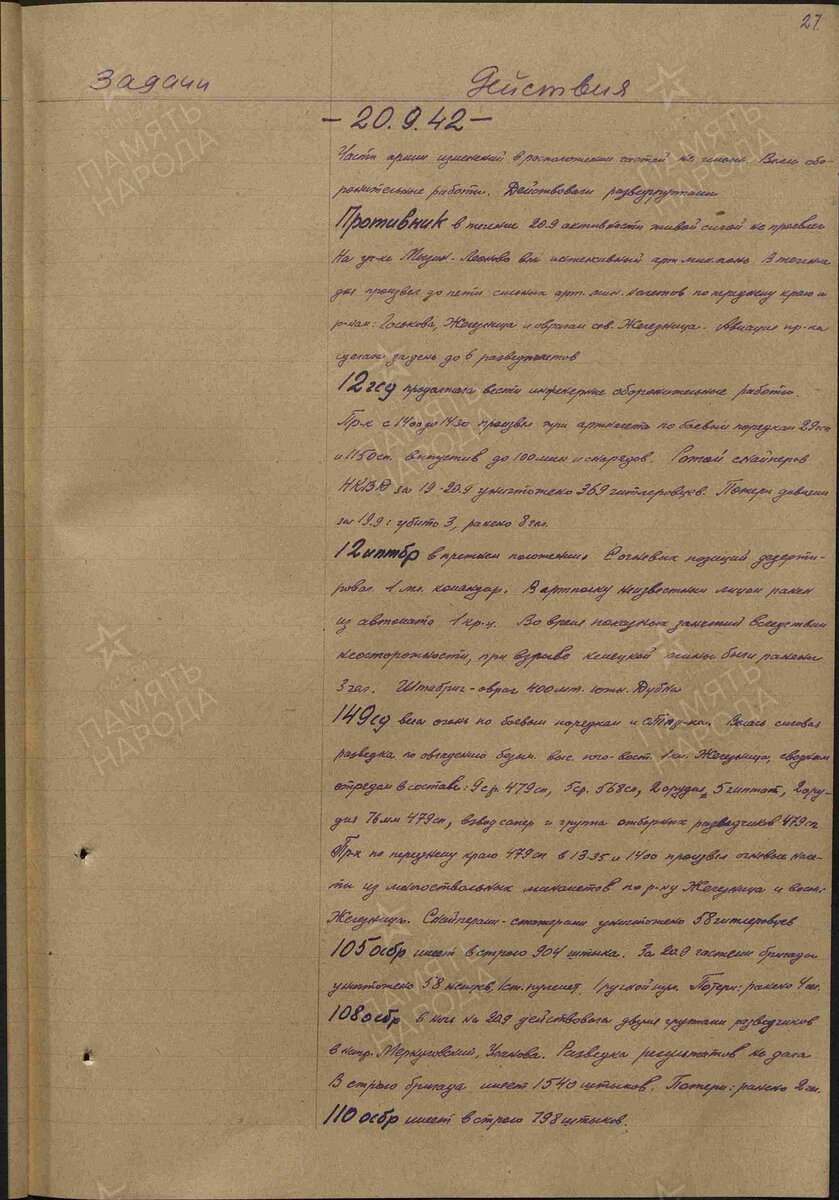 27.
Задачи Действия
- 20.9.42 -
Части армии изменений в расположении частей не имели. Вели обо-
ронительные работы. Действовали разведгруппами
Противник в течение 20.9 активности живой силой не проявлял
На уч-ке Мызин-Леоново вел интенсивный арт.мин.огонь. В течение
дня произвел до пяти сильных арт.мин.налетов по переднему краю и
р-нам: Госькова, Жегезница и оврагам сев. Жегезница. Авиация пр-ка
сделала за день до 6 разведполетов
12гсд продолжала вести инженерные оборонительные работы.
Пр-к с 1400 до 1430 произвел три артналета по боевым порядкам 29сп
и 1150сп. выпустив до 100 мин и снарядов. Ротой снайперов
НКВД за 19-20.9 уничтожено 369 гитлеровцев. Потери дивизии
за 19.9: убито 3, ранено 8 чел.
12иптбр в прежнем положении. С огневых позиций дезерти-
ровал 1 мл. командир. В артполку неизвестным лицом ранен
из автомата 1 кр-ц. Во время показных занятий вследствии
неосторожности, при взрыве немецкой мины были ранены
3 чел. Штабриг-овраг 400мт. южн. Дубна
149сд вела огонь по боевым порядкам и ОТ пр-ка. Велась силовая
разведка по овладению безым. выс. юго-вост. 1 км. Жегезница, сводным
отрядом в составе: 9ср. 479сп, 5ср. 568сп, 2 орудия 5гиптап, 2 ору-
дия 76мм 479сп, взвод сапер и группа отборных разведчиков 479сп
Пр-к по переднему краю 479сп в 13.35 и 1400 произвел огневые нале-
ты из многоствольных минометов по р-ну Жегезница и вост.
Жегезница. Снайперами-стажерами уничтожено 58 гитлеровцев
105осбр имеет в строю 904 штыка. За 20.9 частями бригады
уничтожено 58 немцев, 1 ст. пулемет, 1 ручной пул. Потери: ранено 4 чел.
108осбр в ночь на 20.9 действовала двумя группами разведчиков
в напр. Меркуловский, Ушакова. Разведка результатов не дала
В строю бригада имеет 1540 штыков. Потери: ранено 2 чел.
110осбр имеет в строю 798 штыков.
ПАМЯТЬ
НАРОДА